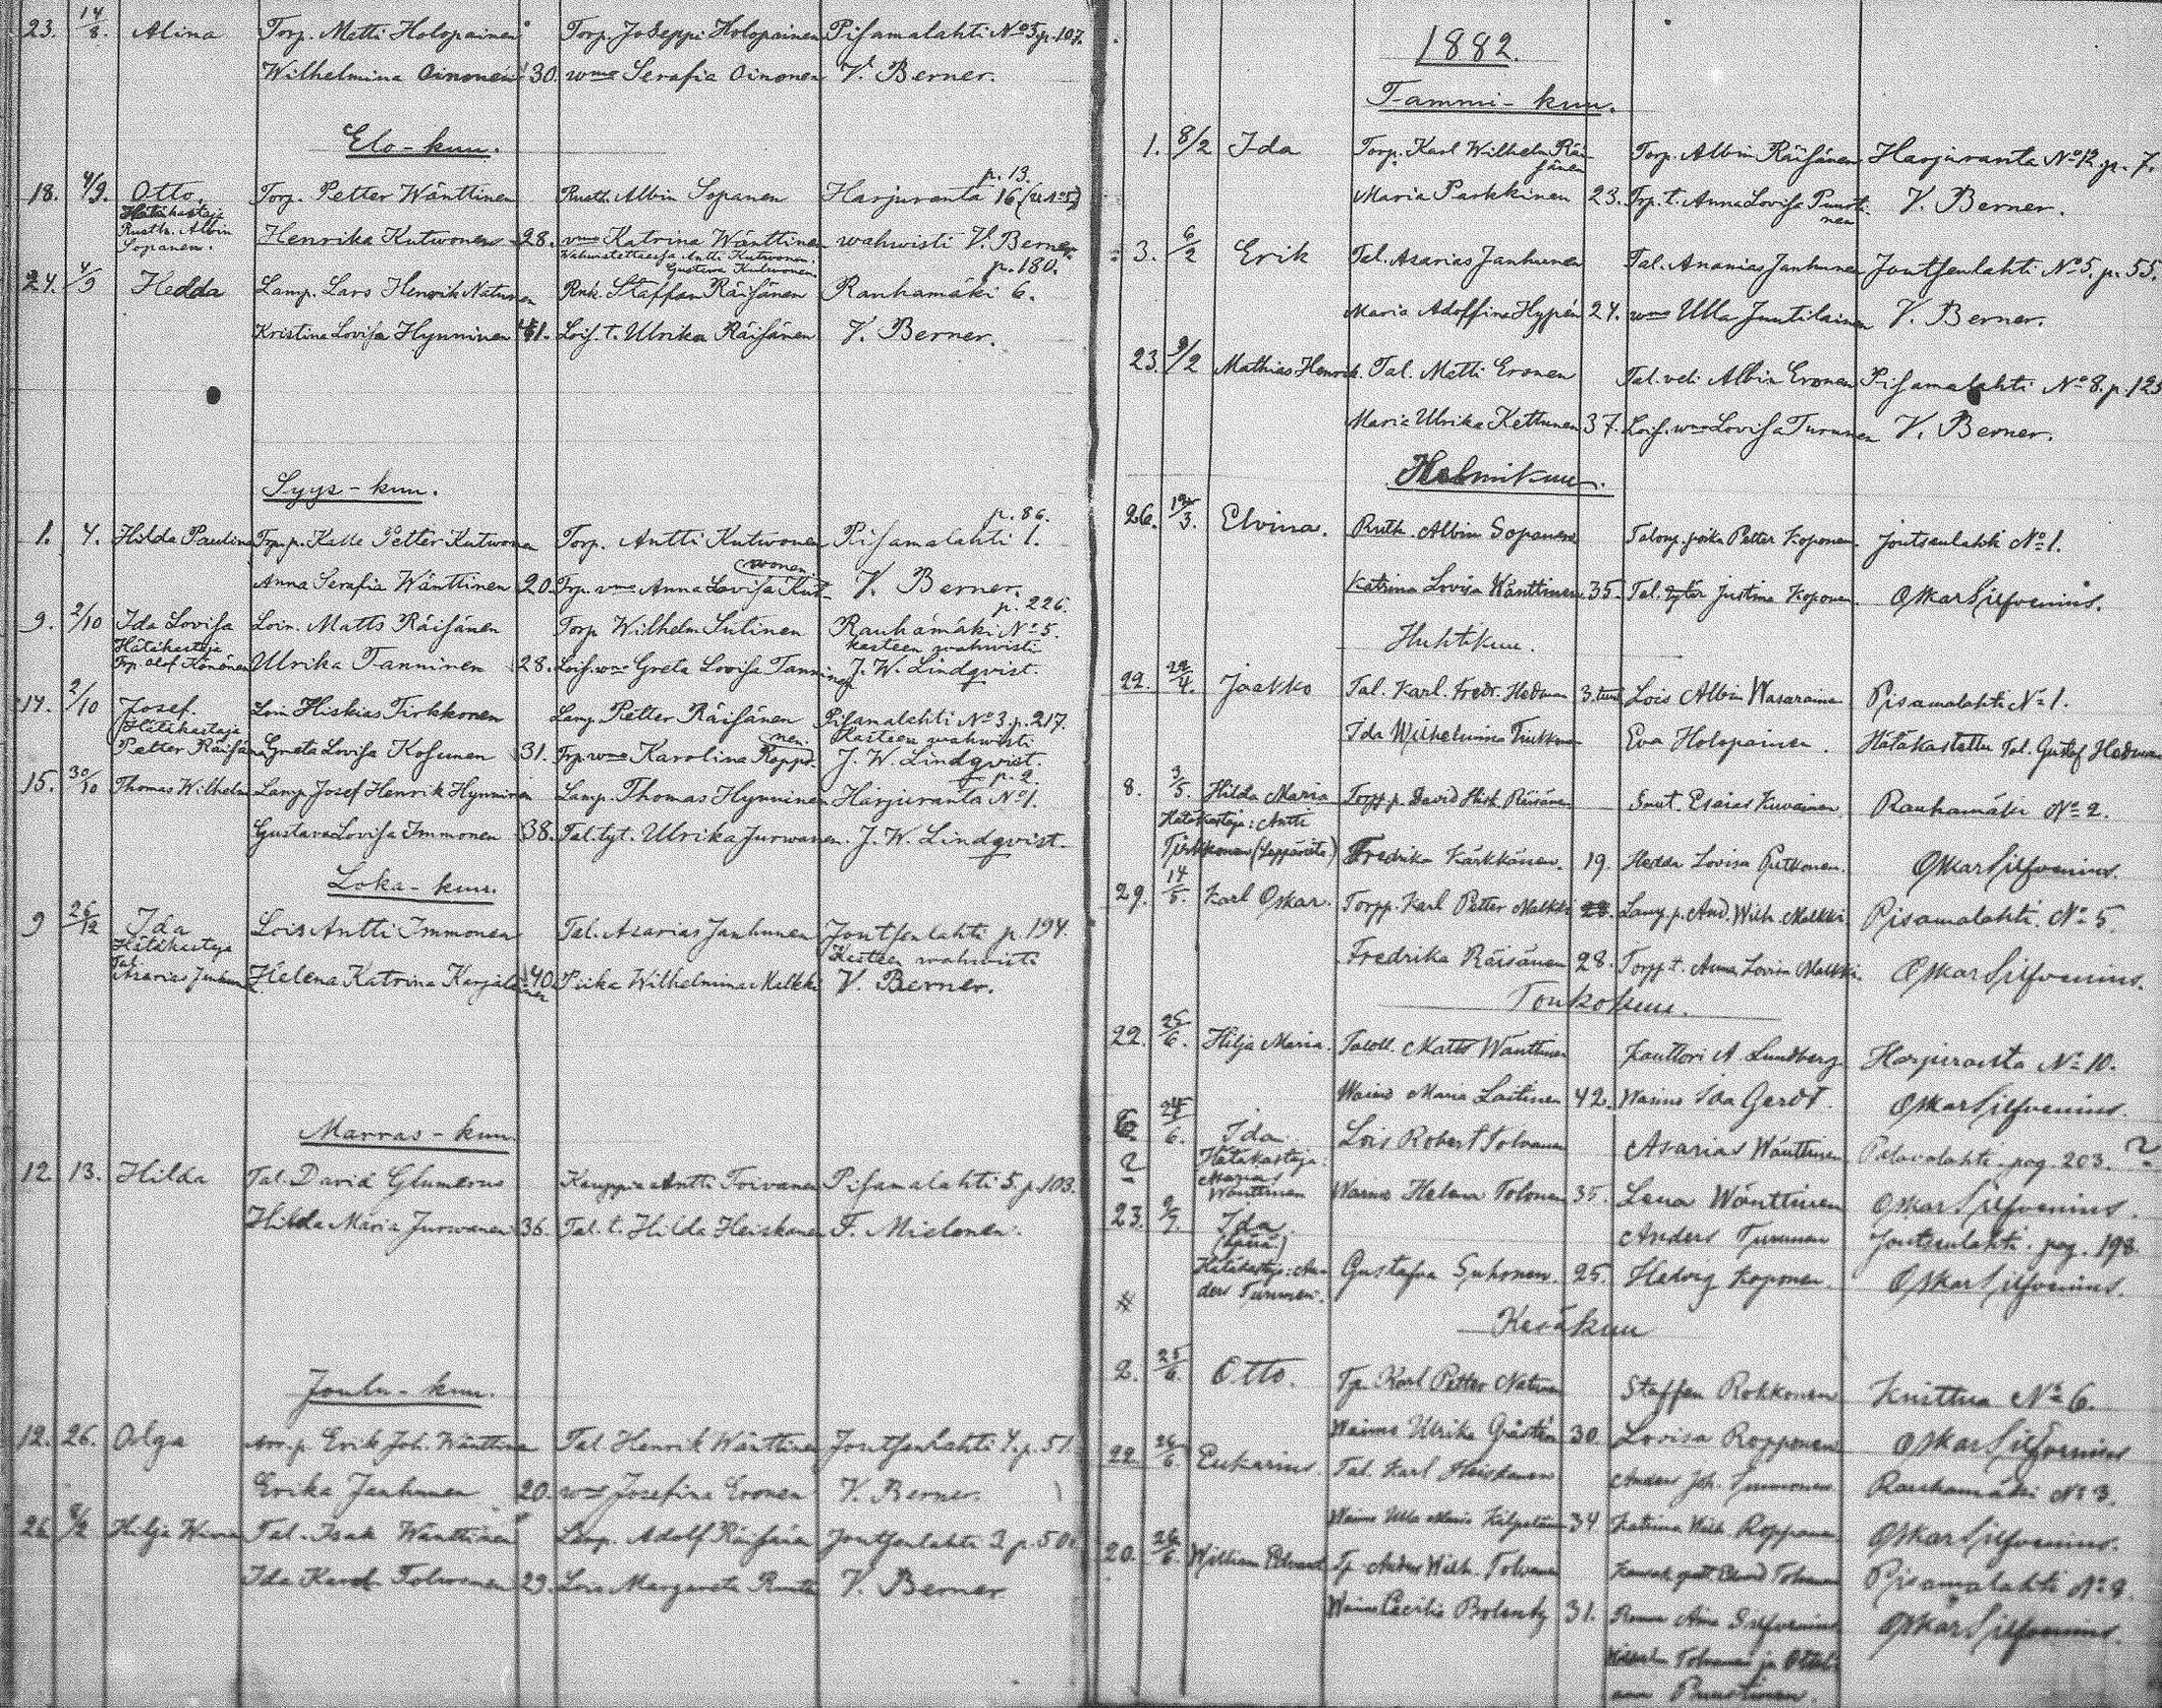 23. 14/8. Alina Torp. Matti Holopainen Torp. Joseppi Holopainen Pisamalahti No 5, p. 107.
Wilhelmina Oinonen 30. wmo Serafia Oinonen V. Berner.
Elo-kuu.
p. 13.
18. 4/9. Otto. Torp. Petter Wänttinen Rusth. Albin Sopanen Harjuranta 16
Hätäkastaja
Rusth. Albin
Sopanen. Henrika Kutwonen 28. wmo Katrina Wänttinen wahwisti V. Berner.
Wahwistettaessa Antti Kutwonen.
Gustava Kutwonen. p. 180.
24. 4/9 Hedda Lamp. Lars Henrik Natunen Rnk. Staffan Räisänen Rauhamäki 6.
Kristina Lovisa Hynninen 41. Lois. t. Ulrika Räisänen V. Berner.
Syys-kuu.
p. 86.
1. 4. Hilda Paulina Trp. p. Kalle Petter Kutwonen Torp. Antti Kutwonen Pisamalahti 1.
Anna Serafia Wänttinen 20. Trp. wmo Anna Lovisa Kutwonen V. Berner.
p. 226.
9. 2/10 Ida Lovisa Loin. Matts Räisänen Torp Wilhelm Sutinen Rauhamäki No 5.
Hätäkastaja kasteen wahwisti
Trp. Olof Könönen Ulrika Tanninen 28. Lois. wmo Greta Lovisa Tanninen J. W. Lindqvist.
14. 2/10 Josef. Loin Hiskias Tirkkonen Lamp Petter Räisänen Pisamalahti No 3. p. 217.
Hätäkastaja Kasteen wahwisti
Petter Räisänen Greta Lovisa Kosunen 31. Trp. wmo KarolinaRopponen. J. W. Lindqvist.
p. 2.
15. 30/10 Thomas Wilhelm Lamp Josef Henrik Hynninen Lamp. Thomas Hynninen Harjuranta No 1.
Gustava Lovisa Immonen 38. Tal. tyt. Ulrika Jurwanen. J. W. Lindqvist.
Loka-kuu.
9 26/12 Ida Lois Antti Immonen Tal. Asarias Janhunen Joutsenlahti p. 194.
Hätäkastaja Kasteen wahwisti
Tal.
Asarias Janhunen Helena Katrina Karjalainen 40. Piika Wilhelmina Malkki V. Berner.
Marras-kuu.
12. 13. Hilda Tal. David Glumerus Kauppias Antti Toivanen Pisamalahti 5 p. 103.
Hilda Maria Jurwanen 36. Tal. t. Hilda Heiskanen F. Mielonen.
Joulu-kuu.
12. 26. Olga Erik Joh. Wänttinen Tal. Henrik Wänttinen Joutsenlahti 4. p. 51.
Erika Janhunen 20. wmo Josefina Eronen V. Berner.
26. Hilja Tal. Isak Wänttinen Lamp. Adolf Räisänen Joutsenlahti 3 p. 50.
Ida Tolwanen 29. Lois Margareta V. Berner
1882.
Tammi-kuu.
1. 8/2 Ida Torp. Karl Wilhelm Räisänen Torp. Albin Räisänen Harjuranta No 12. p. 7.
Maria Parkkinen 23. Trp. t. Anna Lovisa V. Berner.
3. 6/2 Erik Tal. Asarias Janhunen Tal. Ananias Janhunen Joutsenlahti No 5. p. 55.
Maria Adolfina Hypén 24. wmo Ulla Juutilainen V. Berner.
23. 9/2 Mathias Henrik. Tal. Matti Eronen Tal. veli Albin Eronen Pisamalahti No 8. p. 123
Maria Ulrika Kettunen 37. Lois. wmo Lovisa Turunen V. Berner.
Helmikuu.
26. 19/3. Elvina. Rusth. Albin Sopanen Talonp. poika Petter Koponen. Joutsenlahti No 1.
Katrina Lovisa Wänttinen 35. Tal. tytär Justina Koponen. Oskar Silfvenius.
Huhtikuu.
22. 22/4. Jaakko Tal. Karl Fredr. Hedman Lois Albin Wasarainen Pisamalahti No 1.
Ida Wilhelmina Eva Holopainen. Hätäkastettu Tal. Gustaf Hedman
8. 3/5. Hilda Maria Torpp. p. David Räisänen Esaias Kuvainen Rauhamäki No 2.
Hätäkastaja: Antti
Tirkkonen Fredrika Kärkkäinen. 19. Hedda Lovisa Putkonen. Oskar Silfvenius.
29. 14/5. Karl Oskar. Torpp. Karl Petter Malkki 28. Lamp. p. And. Wilh. Malkki Pisamalahti. No 5.
Fredrika Räisänen 28. Torpp. t. Anna Lovisa Malkki. Oskar Silfvenius.
Toukokuu.
22. 25/6. Hilja Maria. Matts Wänttinen Kanttori A. Lundberg Harjuranta No 10.
Waimo Maria Laitinen 42. Waimo Ida Gerdt. Oskar Silfvenius.
6 24/6. Ida Lois Robert Tolvanen Asarias Wänttinen pag. 203. ?
? Hätäkastaja:
Asarias
Wänttinen Waimo Helena Tolonen 35. Lena Wänttinen Oskar Silfvenius.
23. 9/7. Ida Anders Turunen Joutsenlahti. pag. 198.
Hätäkastaja: Anders Turunen. Gustafva Suhonen. 25. Hedvig Koponen. Oskar Silfvenius.
Kesäkuu
2. 25/6. Otto. Tp. Karl Petter Natunen Staffan Rokkonen Knittua No 6.
Waimo Ulrika 30. Lovisa Ropponen Oskar Silfvenius
22. 26/6. Eukarius. Tal. Karl Heiskanen Anders Joh. Rauhamäki No 3.
Waimo Ulla Maria 34 Katrina Wilh. Ropponen Oskar Silfvenius.
20. 26/6. William Edvard Tp. Anders Wilh. Tolvanen Tolvanen Pisamalahti No 8.
Waimo Cecilia 31. Silfvenius Oskar Silfvenius.
Tolvanen ja